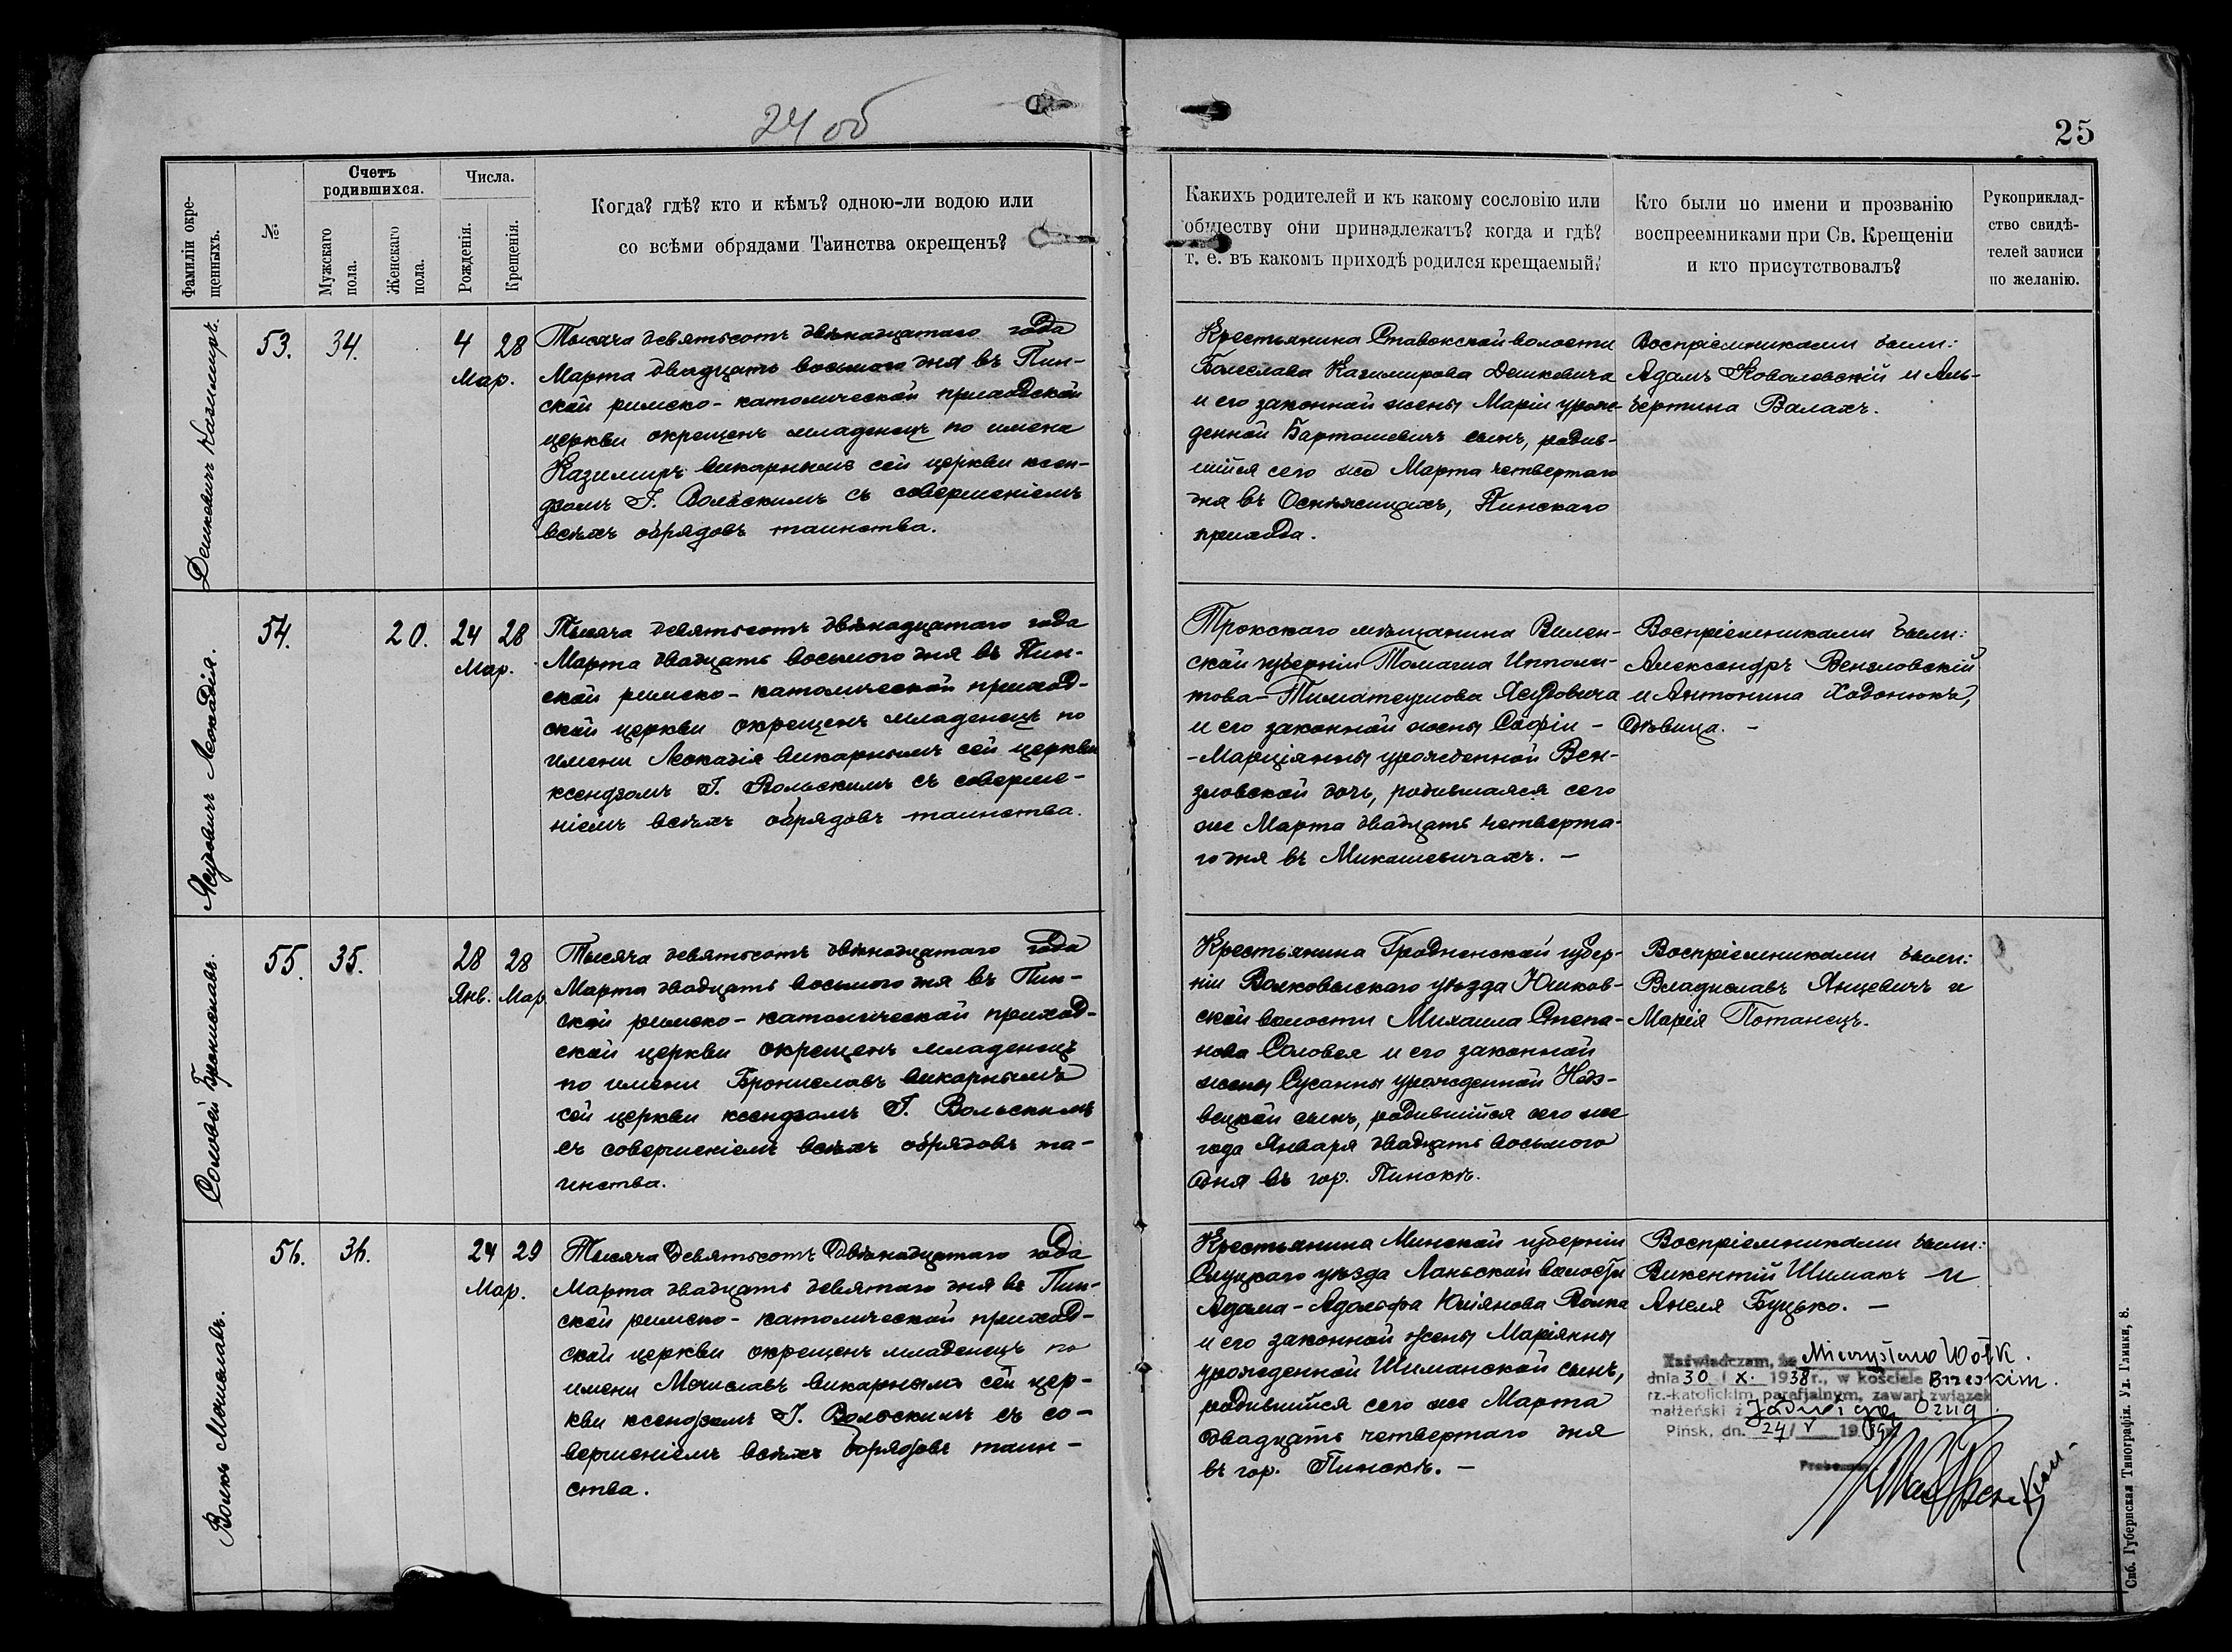 24 об
25
Фамиліи окре-
щенныхъ.
№
Счетъ
родившихся.
Мужскаго
пола.
Женскаго
пола.
Числа.
Рожденія.
Крещенія.
Когда? гдѣ? кто и кѣмъ? одною-ли водою или
со всѣми обрядами Таинства окрещенъ?
Какихъ родителей и къ какому сословію или
обществу они принадлежатъ? когда и гдѣ?
т. е. въ какомъ приходѣ родился крещаемый?
Кто были по имени и прозванію
воспреемниками при Св. Крещеніи
и кто присутствовалъ?
Рукоприклад-
ство свидѣ-
телей записи
по желанію.
Дешкевичъ Казимиръ.
53.
34.
4 28
Мар.
Тысяча девятьсотъ двѣнадцатаго года
Марта двадцать восьмого дня въ Пин-
ской римско-католической приходской
церкви окрещенъ младенецъ по имени
Казимиръ викарнымъ сей церкви ксен-
дзомъ Г. Вольскимъ съ совершеніемъ
всѣхъ обрядовъ таинства.
Крестьянина Ставокской волости
Болеслава Казимирова Дешкевича
и его законной жены Маріи урож-
денной Бартошевичъ сынъ, родив-
шійся сего же Марта четвертаго
дня въ Оснѣжицахъ, Пинскаго
прихода.
Воспріемниками были:
Адамъ Ковалевскій и Аль-
бертина Валахъ.
Ясудовичъ Леокадія.
54.
20.
24 28
Мар.
Тысяча девятьсотъ двѣнадцатаго года
Марта двадцать восьмого дня въ Пин-
ской римско-католической приход-
ской церкви окрещенъ младенецъ по
имени Леокадія викарнымъ сей церкви
ксендзомъ Г. Вольскимъ съ соверше-
ніемъ всѣхъ обрядовъ таинства.
Трокскаго мѣщанина Вилен-
ской губерніи Томаша Иппли-
това-Тиматеушова Ясудовича
и его законной жены Софіи -
-Марціянны урожденной Вен-
зловской дочь, родившаяся сего
же Марта двадцать четверта-
го дня въ Микашевичахъ. -
Воспріемниками были:
Александръ Вензловскій
и Антонина Ходонюкъ,
дѣвица. -
Соловей Брониславъ.
55.
35.
28 28
Янв. Мар
Тысяча девятьсотъ двѣнадцатаго года
Марта двадцать восьмого дня въ Пин-
ской римско-католической приход-
ской церкви окрещенъ младенецъ
по имени Брониславъ викарнымъ
сей церкви ксендзомъ Г. Вольскимъ
съ совершеніемъ всѣхъ обрядовъ та-
инства.
Крестьянина Гродненской губер-
ніи Волковыскаго уѣзда Юшков-
ской волости Михаила Степа-
нова Соловея и его законной
жены Сусанны урожденной
сынъ, родившійся сего же
года Января двадцать восьмого
дня въ гор. Пинскѣ.
Воспріемниками были:
Владиславъ Янцевичъ и
Марія Потанецъ.
Волкъ Мечиславъ.
56.
36.
24 29
Мар.
Тысяча девятьсотъ двѣнадцатаго года
Марта двадцать девятаго дня въ Пин-
ской римско-католической приход-
ской церкви окрещенъ младенецъ по
имени Мечиславъ викарнымъ сей цер-
кви ксендзомъ Г. Вольскимъ съ со-
вершеніемъ всѣхъ обрядовъ таин-
ства.
Крестьянина Минской губерніи
Слуцкаго уѣзда Ланьской волости
Адама-Адольфа Юліянова Волка
и его законной жены Маріянны
урожденной Шиманской сынъ,
родившійся сего же Марта
двадцать четвертаго дня
въ гор. Пинскѣ. -
Воспріемниками были:
Викентій Шимакъ и
Анеля Буцько. -
Zaświadczam, że Mieczysław Wołk.
dnia 30 / X. 1938 r., w kościele Brzeskim.
rz.-katolickim parafjalnym, zawarł związek
małżeński z Jadwigą Ozug.
Pińsk, dn. 24/ V 19
Спб. Губернская Типографія. Уд. Глинки, 8.